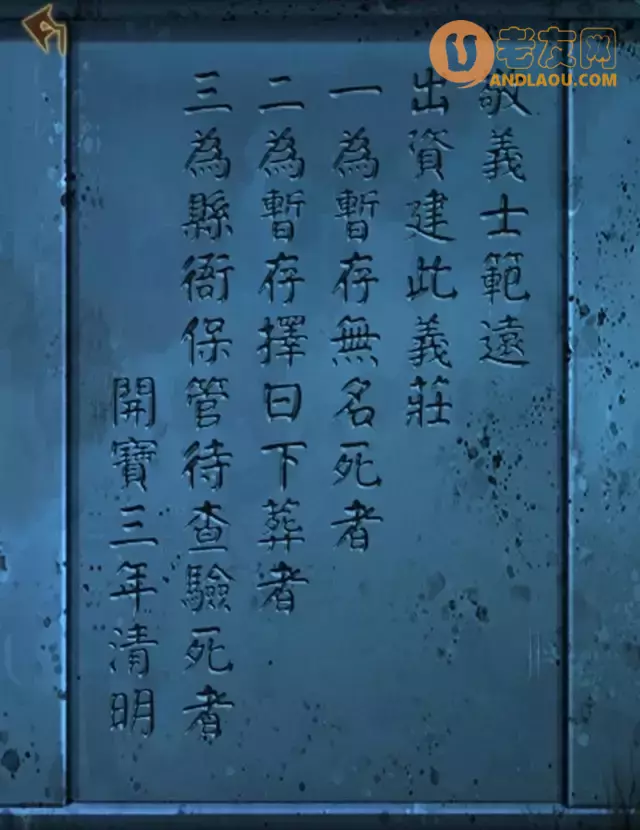 敬義士範遠
出資建此義莊
一為暫存無名死者
二為暫存擇日下葬者
三為縣衙保管待查驗死者
開寶三年清明
老友网
ANDLAOU.COM